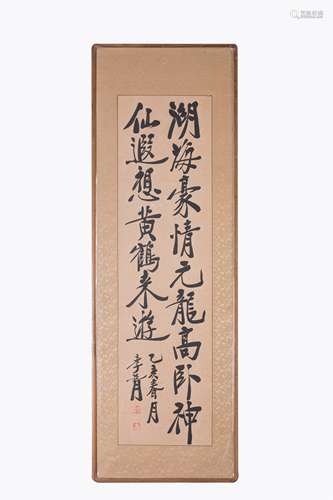 湖海豪情元龍高卧神
仙遐想黃鶴来遊
乙亥春月